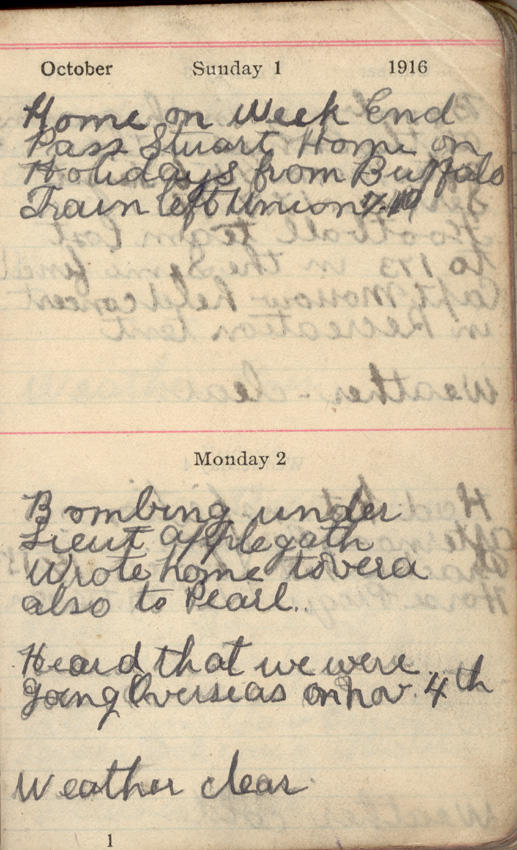 October Sunday 1 1916
Home on Week End
Pass Stuart Home on
Holidays from Buffalo
Train left Union 7.10
Monday 2
Bombing under
Lieut Applegath
Wrote home to Vera
also to Pearl..
Heard that we were
going Overseas on nov. 4th
Weather clear.
1